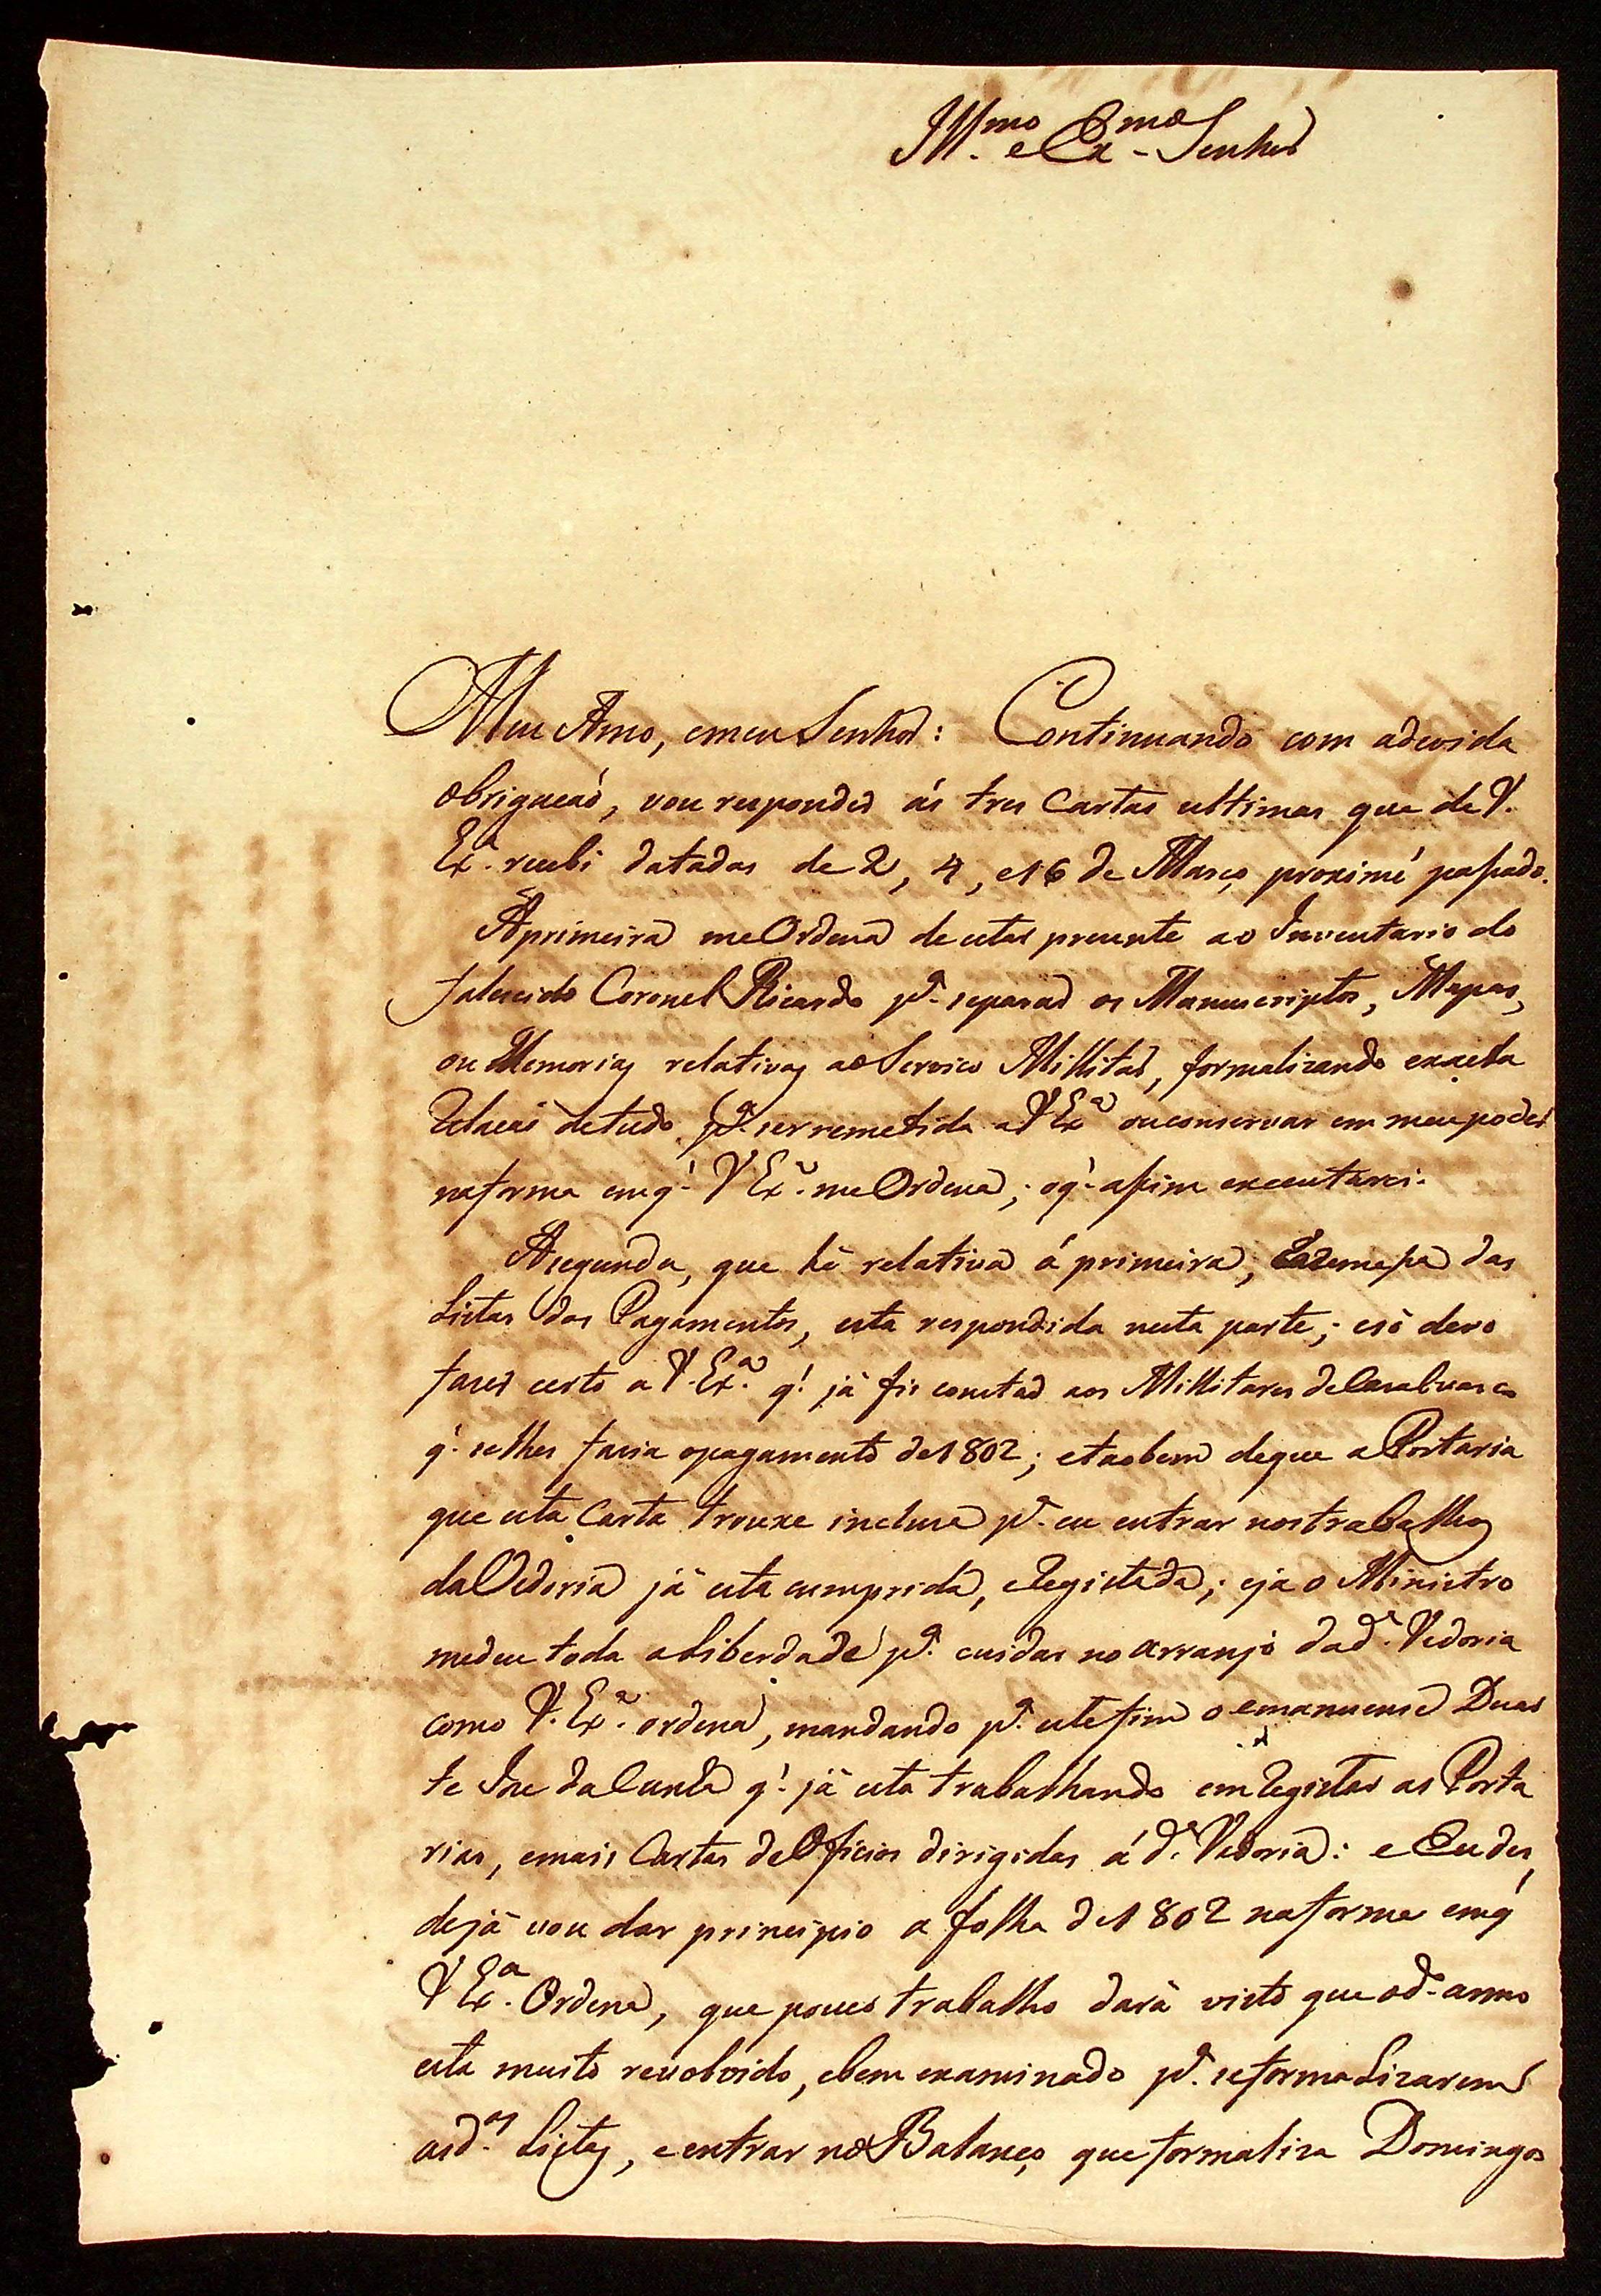 Ill.mo e Ex.mo Senhor
Meu Amo, emeu Senhor: Continuando com adevida
obrigaçaõ, vou responder ás tres Cartas ultimas que de V.
Ex.a recebi datadas de 2, 4, e16 de Março proximè passado.
Aprimeira meOrdena deestar prezente ao Inventario do
falescido Coronel Ricardo p.a separar os Manuscriptos, Mapas,
ou Memorias relativas aoServico Millitar, formalizando exacta
Relacaõ detudo p.a serremetida aV Ex.a ouconservar em meupoder
naforma emq' V Ex.a meOrdena; oq' assim executarei.
Asegunda, que hé relativa á primeira, eàremessa das
Listas dos Pagamentos, esta respondida nesta parte; esò devo
fazer certo a V. Ex.a q' já fis constar aos Millitares deCasalvasco
q' selhes faria opagamento de1802; etaobem deque aPortaria
que esta Carta trouxe incluza p.a eu entrar nostrabalhos
daVedoria já esta cumprida, eRegistada; ejao Ministro
medeu toda aLiberdade p.a cuidar no arranjo dad.a Vedoria
como V. Ex.a ordena, mandando p.a estefim o emanuense Duar
te Joze daCunha q' já esta trabalhando emRegistar as Porta
rias, emais Cartas deOficios dirigidas ád.a Vedoria: e Eudes
dejá vou dar principio a folha de1802 naforma emq'
V Ex.a Ordena, que pouco trabalho dará visto que od.o anno
esta muito revolvido, ebem examinado p.a seformaLizarem
asd.as Listas, eentrar noBalanço queformaliza Domingos